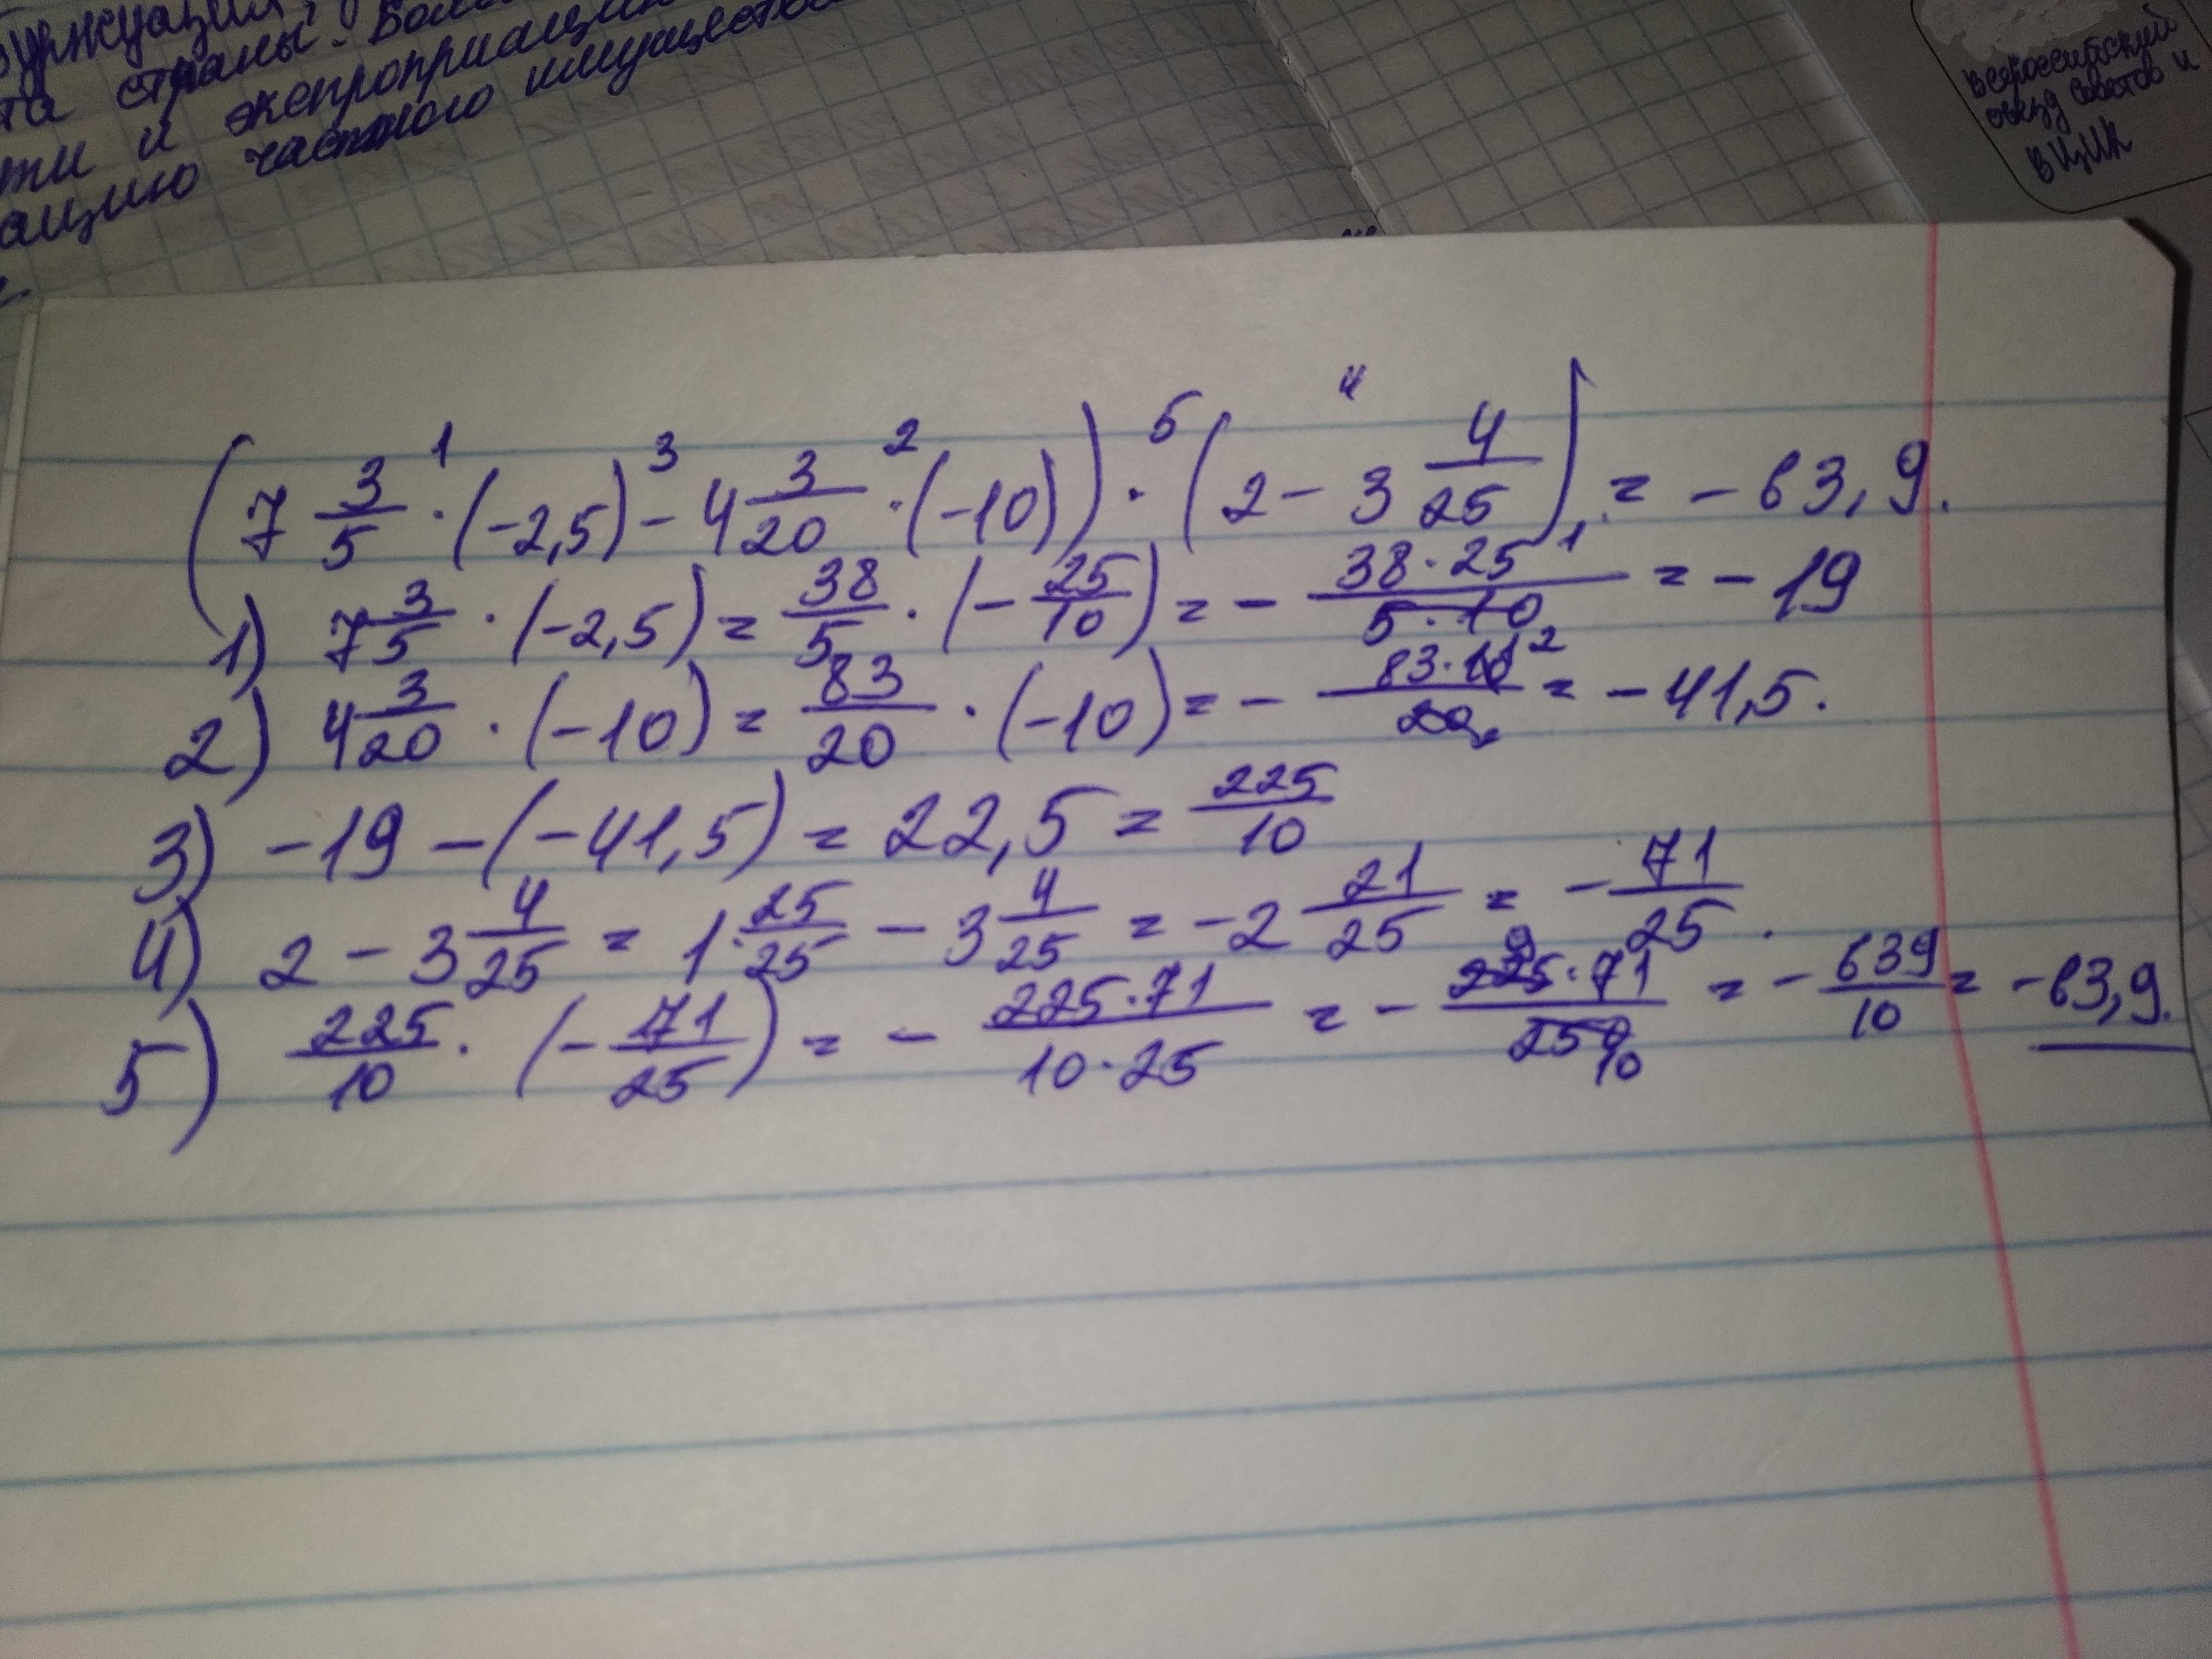 та страны. Боль
ти и экспроприацию
ацию частного имущества
Всероссийский
съезд советов и
ВЦИК
(7 3/5 · (-2,5) - 4 3/20 · (-10)) · (2 - 3 4/25) = - 63,9.
1) 7 3/5 · (-2,5) = 38/5 · (- 25/10) = - 38·25/5·10 = - 19
2) 4 3/20 · (-10) = 83/20 · (-10) = - 83·10/20 = - 41,5.
3) -19 - (-41,5) = 22,5 = 225/10
4) 2 - 3 4/25 = 1 25/25 - 3 4/25 = -2 21/25 = - 71/25.
5) 225/10 · (- 71/25) = - 225·71/10·25 = - 225·71/250 = - 639/10 = -63,9.